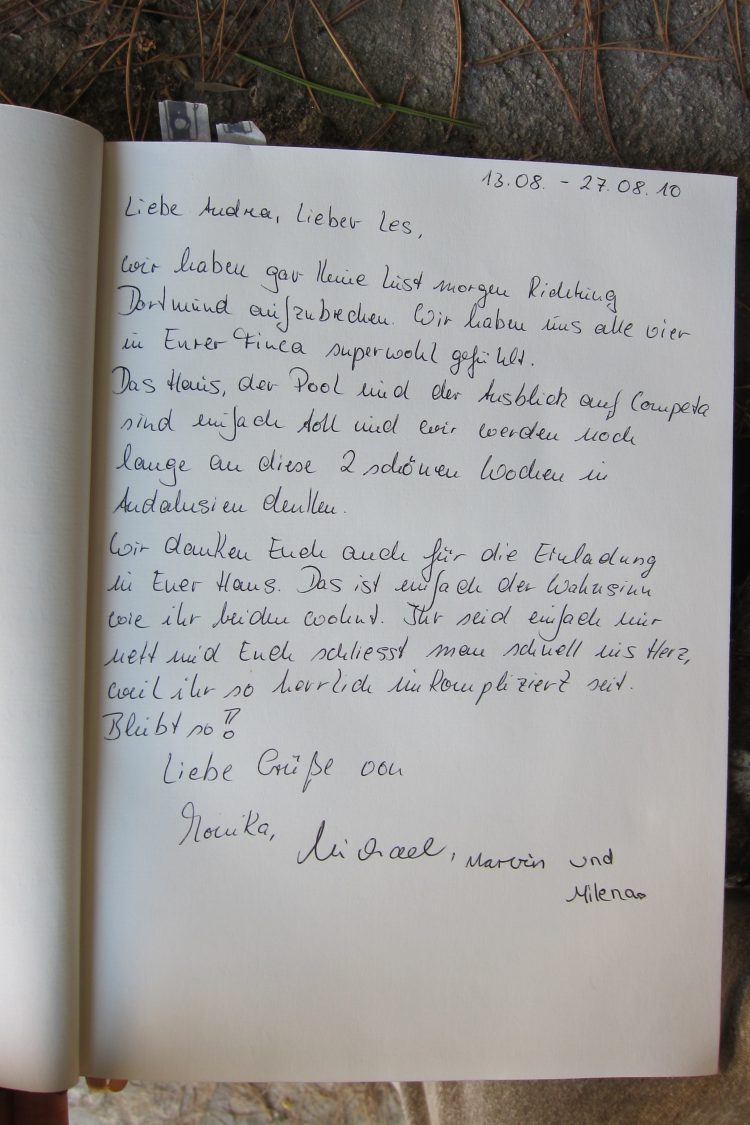 13.08. - 27.08.10
Liebe Andrea, Lieber Les,
wir haben gar keine Lust morgen Richtung
Dortmund aufzubrechen. Wir haben uns alle vier
in Eurer Finca superwohl gefühlt.
Das Haus, der Pool und der Ausblick auf Competa
sind einfach toll und wir werden noch
lange an diese 2 schönen Wochen in
Andalusien denken.
Wir danken Euch auch für die Einladung
in Euer Haus. Das ist einfach der Wahnsinn
wie ihr beiden wohnt. Ihr seid einfach nur
nett und Euch schliesst man schnell ins Herz,
weil ihr so herrlich unkompliziert seit.
Bleibt so!
Liebe Grüße von
Monika,
Michael, Marvin und
Milena